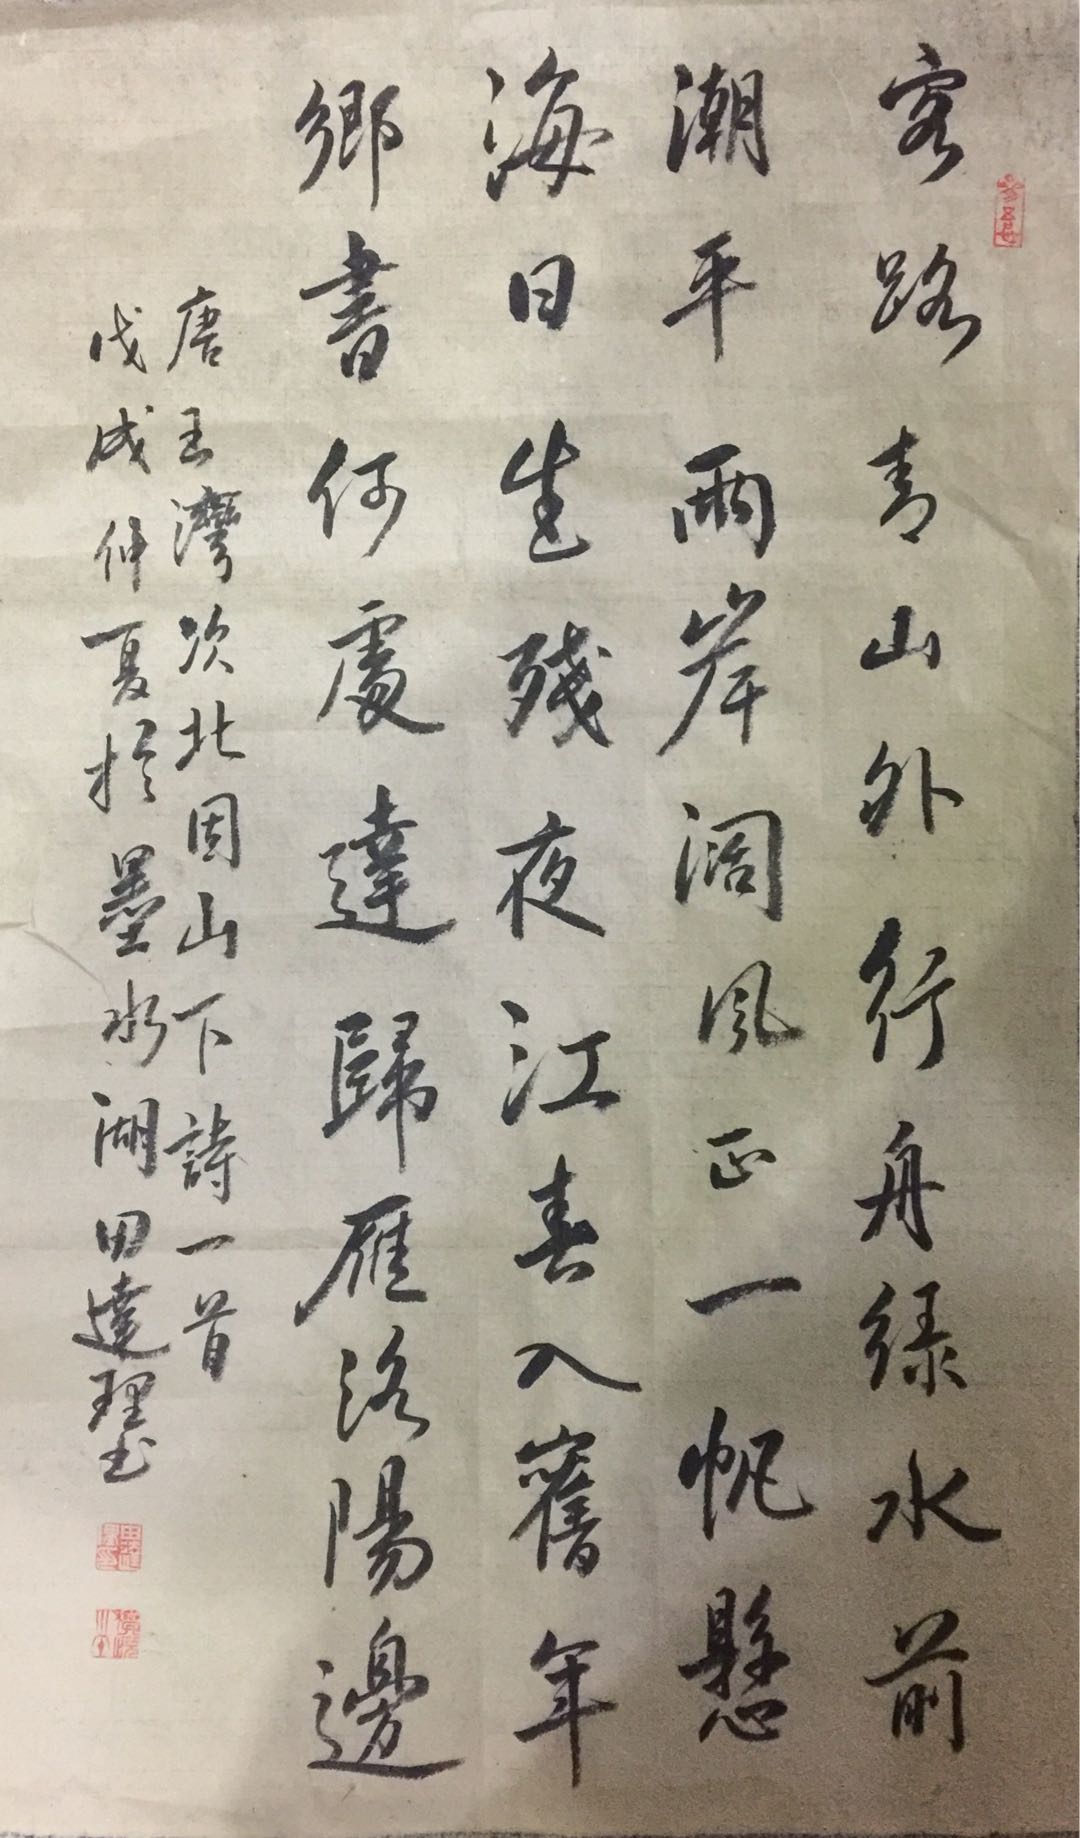 客路青山外行舟綠水前
潮平兩岸闊風正一帆懸
海日生殘夜江春入舊年
鄉書何處達歸雁洛陽邊
唐王灣次北固山下詩一首
戊戌仲夏於墨水湖田達理書